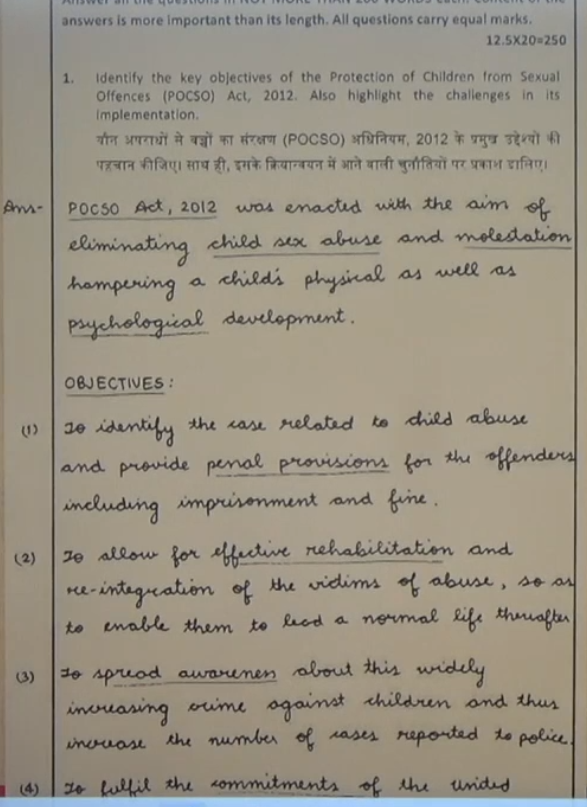 answers is more important than its length. All questions carry equal marks.
12.5X20=250
1. Identify the key objectives of the Protection of Children from Sexual
Offences (POCSO) Act, 2012. Also highlight the challenges in its
implementation.
यौन अपराधों से बच्चों का संरक्षण (POCSO) अधिनियम, 2012 के प्रमुख उद्देश्यों की
पहचान कीजिए। साथ ही, इसके क्रियान्वयन में आने वाली चुनौतियों पर प्रकाश डालिए।
Ans- POCSO Act, 2012 was enacted with the aim of
eliminating child sex abuse and molestation
hampering a child's physical as well as
psychological development.
OBJECTIVES:
(1) To identify the case related to child abuse
and provide penal provisions for the offenders
including imprisonment and fine.
(2) To allow for effective rehabilitation and
re-integration of the victims of abuse, so as
to enable them to lead a normal life thereafter
(3) To spread awareness about this widely
increasing crime against children and thus
increase the number of cases reported to police.
(4) To fulfil the commitments of the United